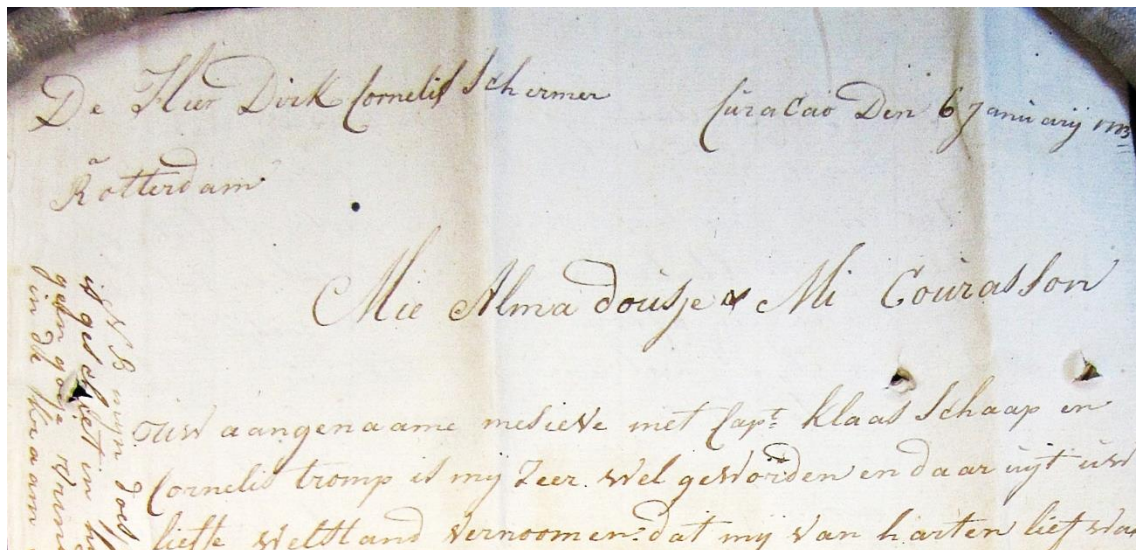 De Heer Dirk Cornelis Schermer
Curacao Den 6 Januarij 1783
a
Rotterdam
Mie Alma dousje & Mi Courasson
Uw aangenaame mesieve met Capt: Klaas Schaap en
Cornelis tromp is mij Zeer Wel geworden en daar uijt uw
liefte Weltland vernoomen: dat mij van harten lief was
NB mijn dog
is ges in h
geen goeje vrin
in de kraam